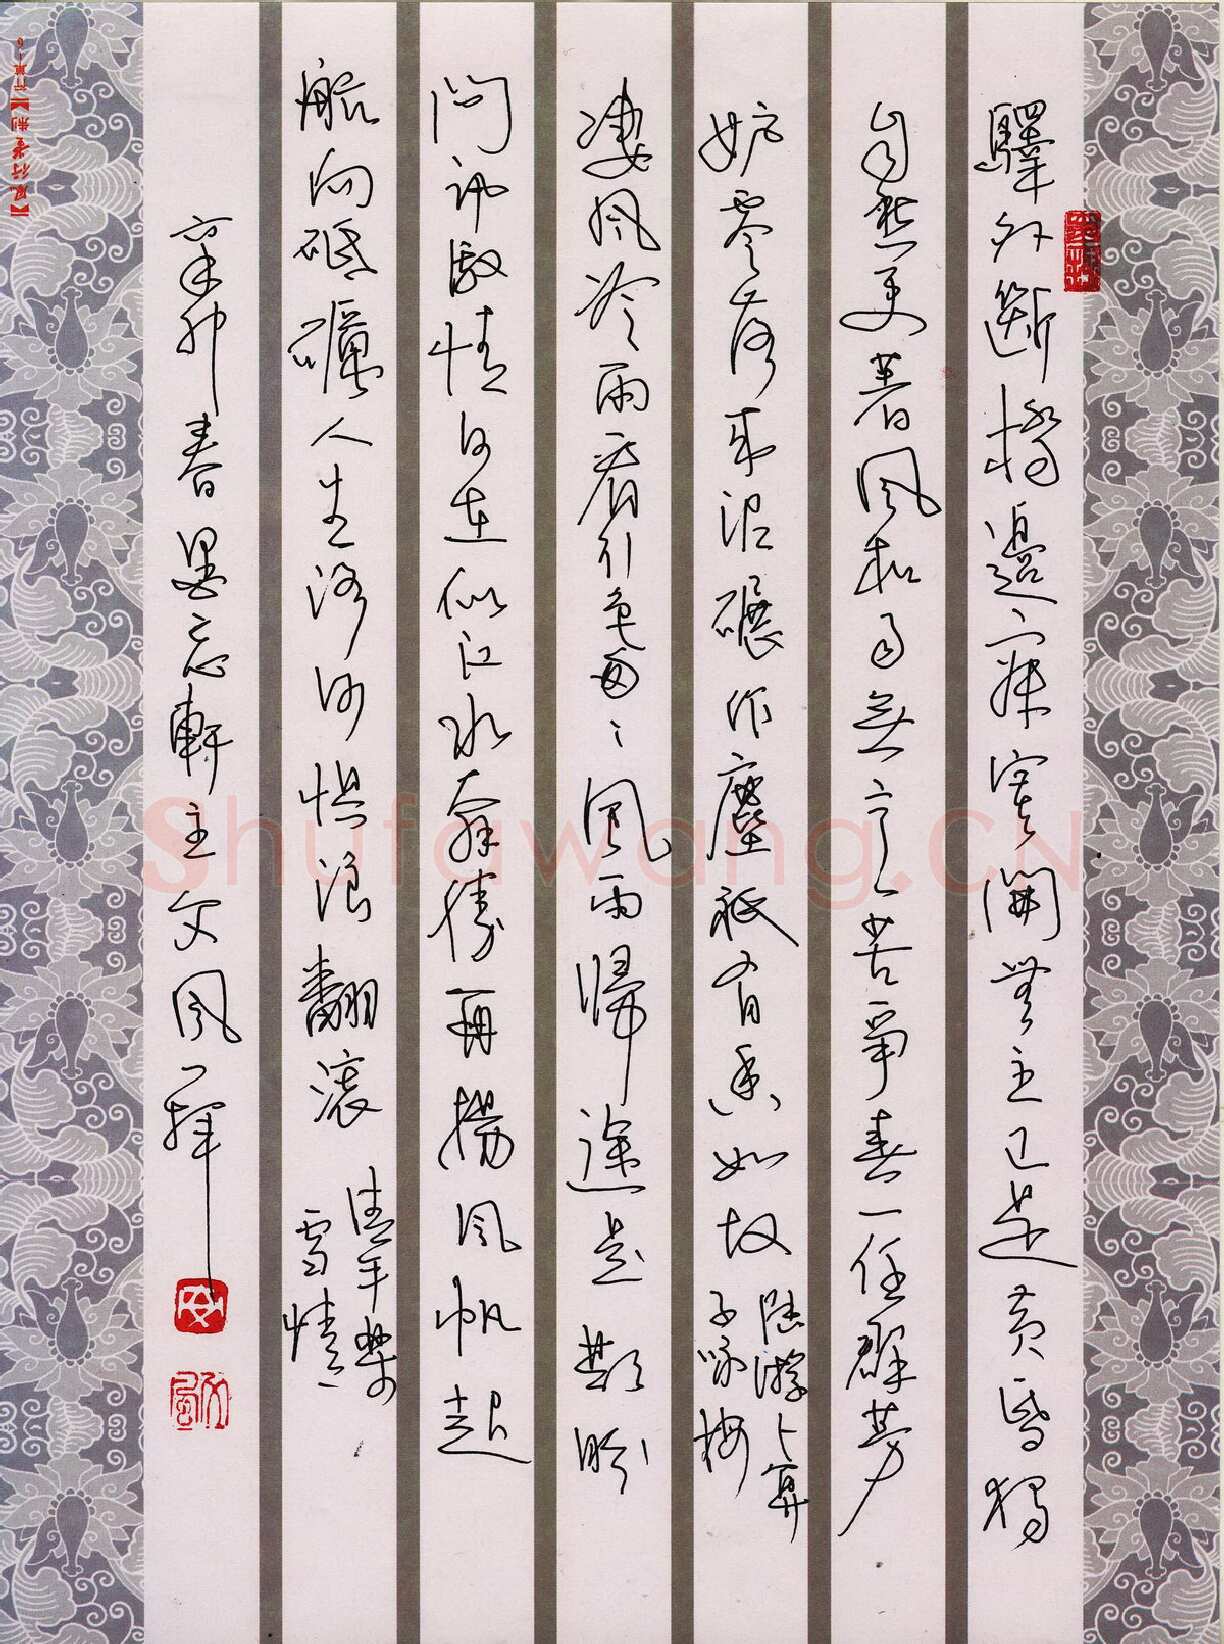 驛外斷橋邊寂寞開無主已是黃昏獨
自愁更著風和雨無意苦爭春一任群芳
妒零落成泥碾作塵祇有香如故
陸游卜算
子詠梅
淒風冷雨看行色匆匆風雨歸途是期盼
問訊激情何在似江水奔騰再揚風帆起
航向砥礪人生路何懼浪翻滾
清平樂
雪情
辛卯春墨忘軒主文風一揮
文風
Shufawang.CN